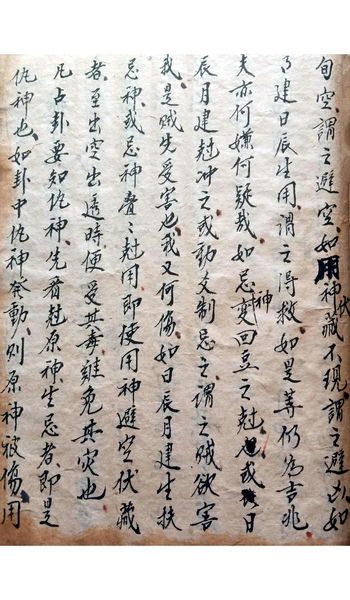 旬空謂之避空如用神伏藏不現謂之避凶如
月建日辰生用謂之得救如是等仍為吉兆
夫亦何嫌何疑哉如忌神變回豆之尅或日
辰月建尅冲之或動爻制忌之謂之賊欲害
我是賊先受害也我又何傷如日辰月建生扶
忌神或忌神疊〻尅用即使用神避空伏藏
者至出空出透時便受其毒難免其灾也
凡占卦要知仇神先看尅原神生忌者即是
仇神也如卦中仇神發動則原神被傷用